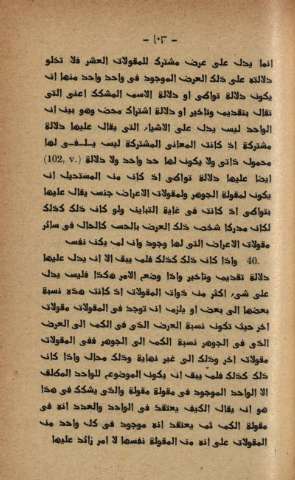 — ١٠٣ —
انما يدل على عرض مشترك للمقولات العشر فلا تخلو
دلالته على ذلك العرض الموجود فى واحد واحد منها ان
يكون دلالة تواطى او دلالة الاسم المشكك اعنى التى
تقال بتقديم وتاخير او دلالة اشتراك محض وهو بين ان
الواحد ليس يدل على الاشياء التى يقال عليها دلالة
مشتركة اذ كانت المعانى المشتركة ليس يلفى لها
محمول ذاتى ولا يكون لها حد واحد ولا دلالة (102, v.)
ايضا عليها دلالة تواطى اذ كان من المستحيل ان
يكون لمقولة الجوهر ولمقولات الاعراض جنس يقال عليها
بتواطى اذ كانت فى غاية التباين ولو كان ذلك كذلك
لكان مدركا شخص ذلك العرض بالحس كالحال فى سائر
مقولات الاعراض التى لها وجود وان لم يكن نفس
40. واذا كان ذلك كذلك فلم يبق الا ان يدل عليها
دلالة تقديم وتاخير واذا وضع الامر هكذا فليس يدل
على شىء اكثر من ذوات المقولات اذ كانت هذه نسبة
بعضها الى بعض او يلزم ان توجد فى المقولات مقولات
اخر حيث تكون نسبة العرض الذى فى الكم الى العرض
الذى فى الجوهر نسبة الكم الى الجوهر ففى المقولات
مقولات اخر وذلك الى غير نهاية وذلك محال واذا كان
ذلك كذلك فلم يبق ان يكون الموضوع للواحد المطلق
الا الواحد الموجود فى مقولة مقولة والذى يشكك فى هذا
هو ان يقال الكيف يعتقد فى الواحد والعدد انه فى
مقولة الكم ثم يعتقد انه موجود فى كل واحد من
المقولات على انه من المقولة نفسها لا امر زائد عليها